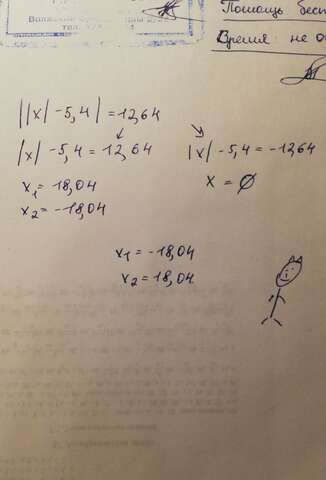 Помощь бесп
Время: не о
||x| -5,4| =12,64
|x| -5,4 = 12,64
|x| -5,4 = -12,64
x₁= 18,04
x = ∅
x₂= -18,04
x₁ = -18,04
x₂ = 18,04